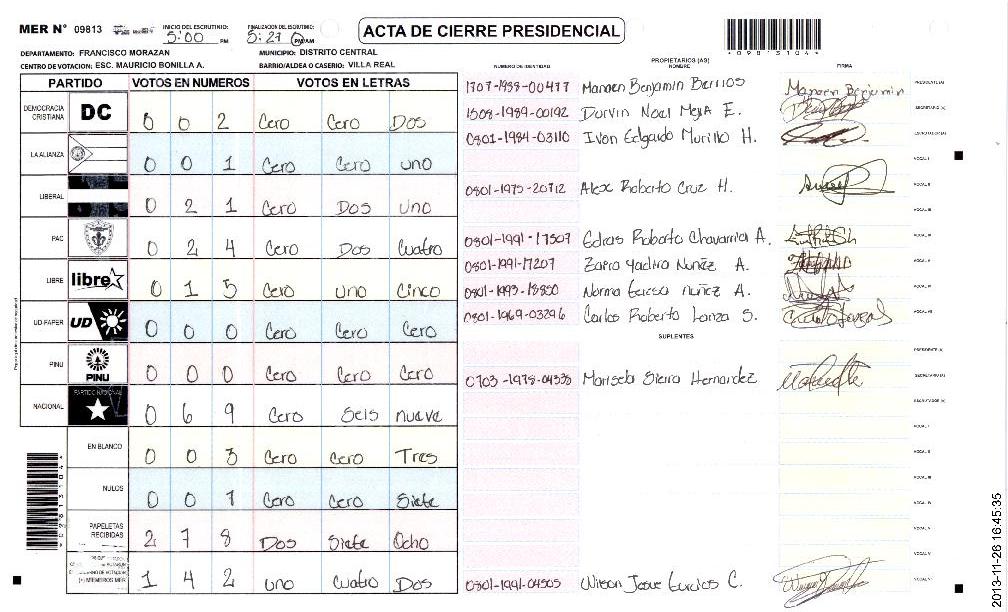 MER N° 09813 INICIO DEL ESCRUTINIO: 5:00 PM FINALIZACION DEL ESCRUTINIO: 5:27 PM/AM
ACTA DE CIERRE PRESIDENCIAL
*09813104*
DEPARTAMENTO: FRANCISCO MORAZAN MUNICIPIO: DISTRITO CENTRAL
CENTRO DE VOTACION: ESC. MAURICIO BONILLA A. BARRIO/ALDEA O CASERIO: VILLA REAL
PARTIDO VOTOS EN NUMEROS VOTOS EN LETRAS
DEMOCRACIA CRISTIANA DC 0 0 2 Cero Cero Dos
LA ALIANZA 0 0 1 Cero Cero uno
LIBERAL 0 2 1 Cero Dos uno
PAC 0 2 4 Cero Dos Cuatro
LIBRE libre 0 1 5 Cero uno Cinco
UD-FAPER UD 0 0 0 Cero Cero Cero
PINU PINU 0 0 0 Cero Cero Cero
NACIONAL PARTIDO NACIONAL 0 6 9 Cero Seis nueve
EN BLANCO 0 0 3 Cero Cero Tres
NULOS 0 0 7 Cero Cero Siete
PAPELETAS RECIBIDAS 2 7 8 Dos Siete Ocho
(+) MIEMBROS MER 1 4 2 uno Cuatro Dos
NUMERO DE IDENTIDAD PROPIETARIOS (AS) NOMBRE FIRMA
1707-1988-00477 Manaen Benjamin Berrios Manaen Benjamin PRESIDENTE(A)
1508-1989-00192 Darvin Noel Meja E. SECRETARIO (A)
0801-1984-03110 Ivon Edgardo Murillo H. ESCRUTADOR(A)
VOCAL I
0801-1975-20712 Alex Roberto Cruz H. VOCAL II
VOCAL III
0801-1991-17507 Edras Roberto Chavarria A. VOCAL IV
0801-1991-17207 Zaira Yadira Nuñez A. VOCAL V
0801-1993-18850 Norma Teresa nuñez A. VOCAL VI
0801-1969-03296 Carlos Roberto Lanza S. VOCAL VII
SUPLENTES
PRESIDENTE(A)
0703-1978-04535 Marisela Sierra Hernandez SECRETARIO (A)
ESCRUTADOR (A)
VOCAL I
VOCAL II
VOCAL III
VOCAL IV
VOCAL V
VOCAL VI
0801-1991-04505 Wilson Josue C. VOCAL VII
2013-11-26 16:45:35